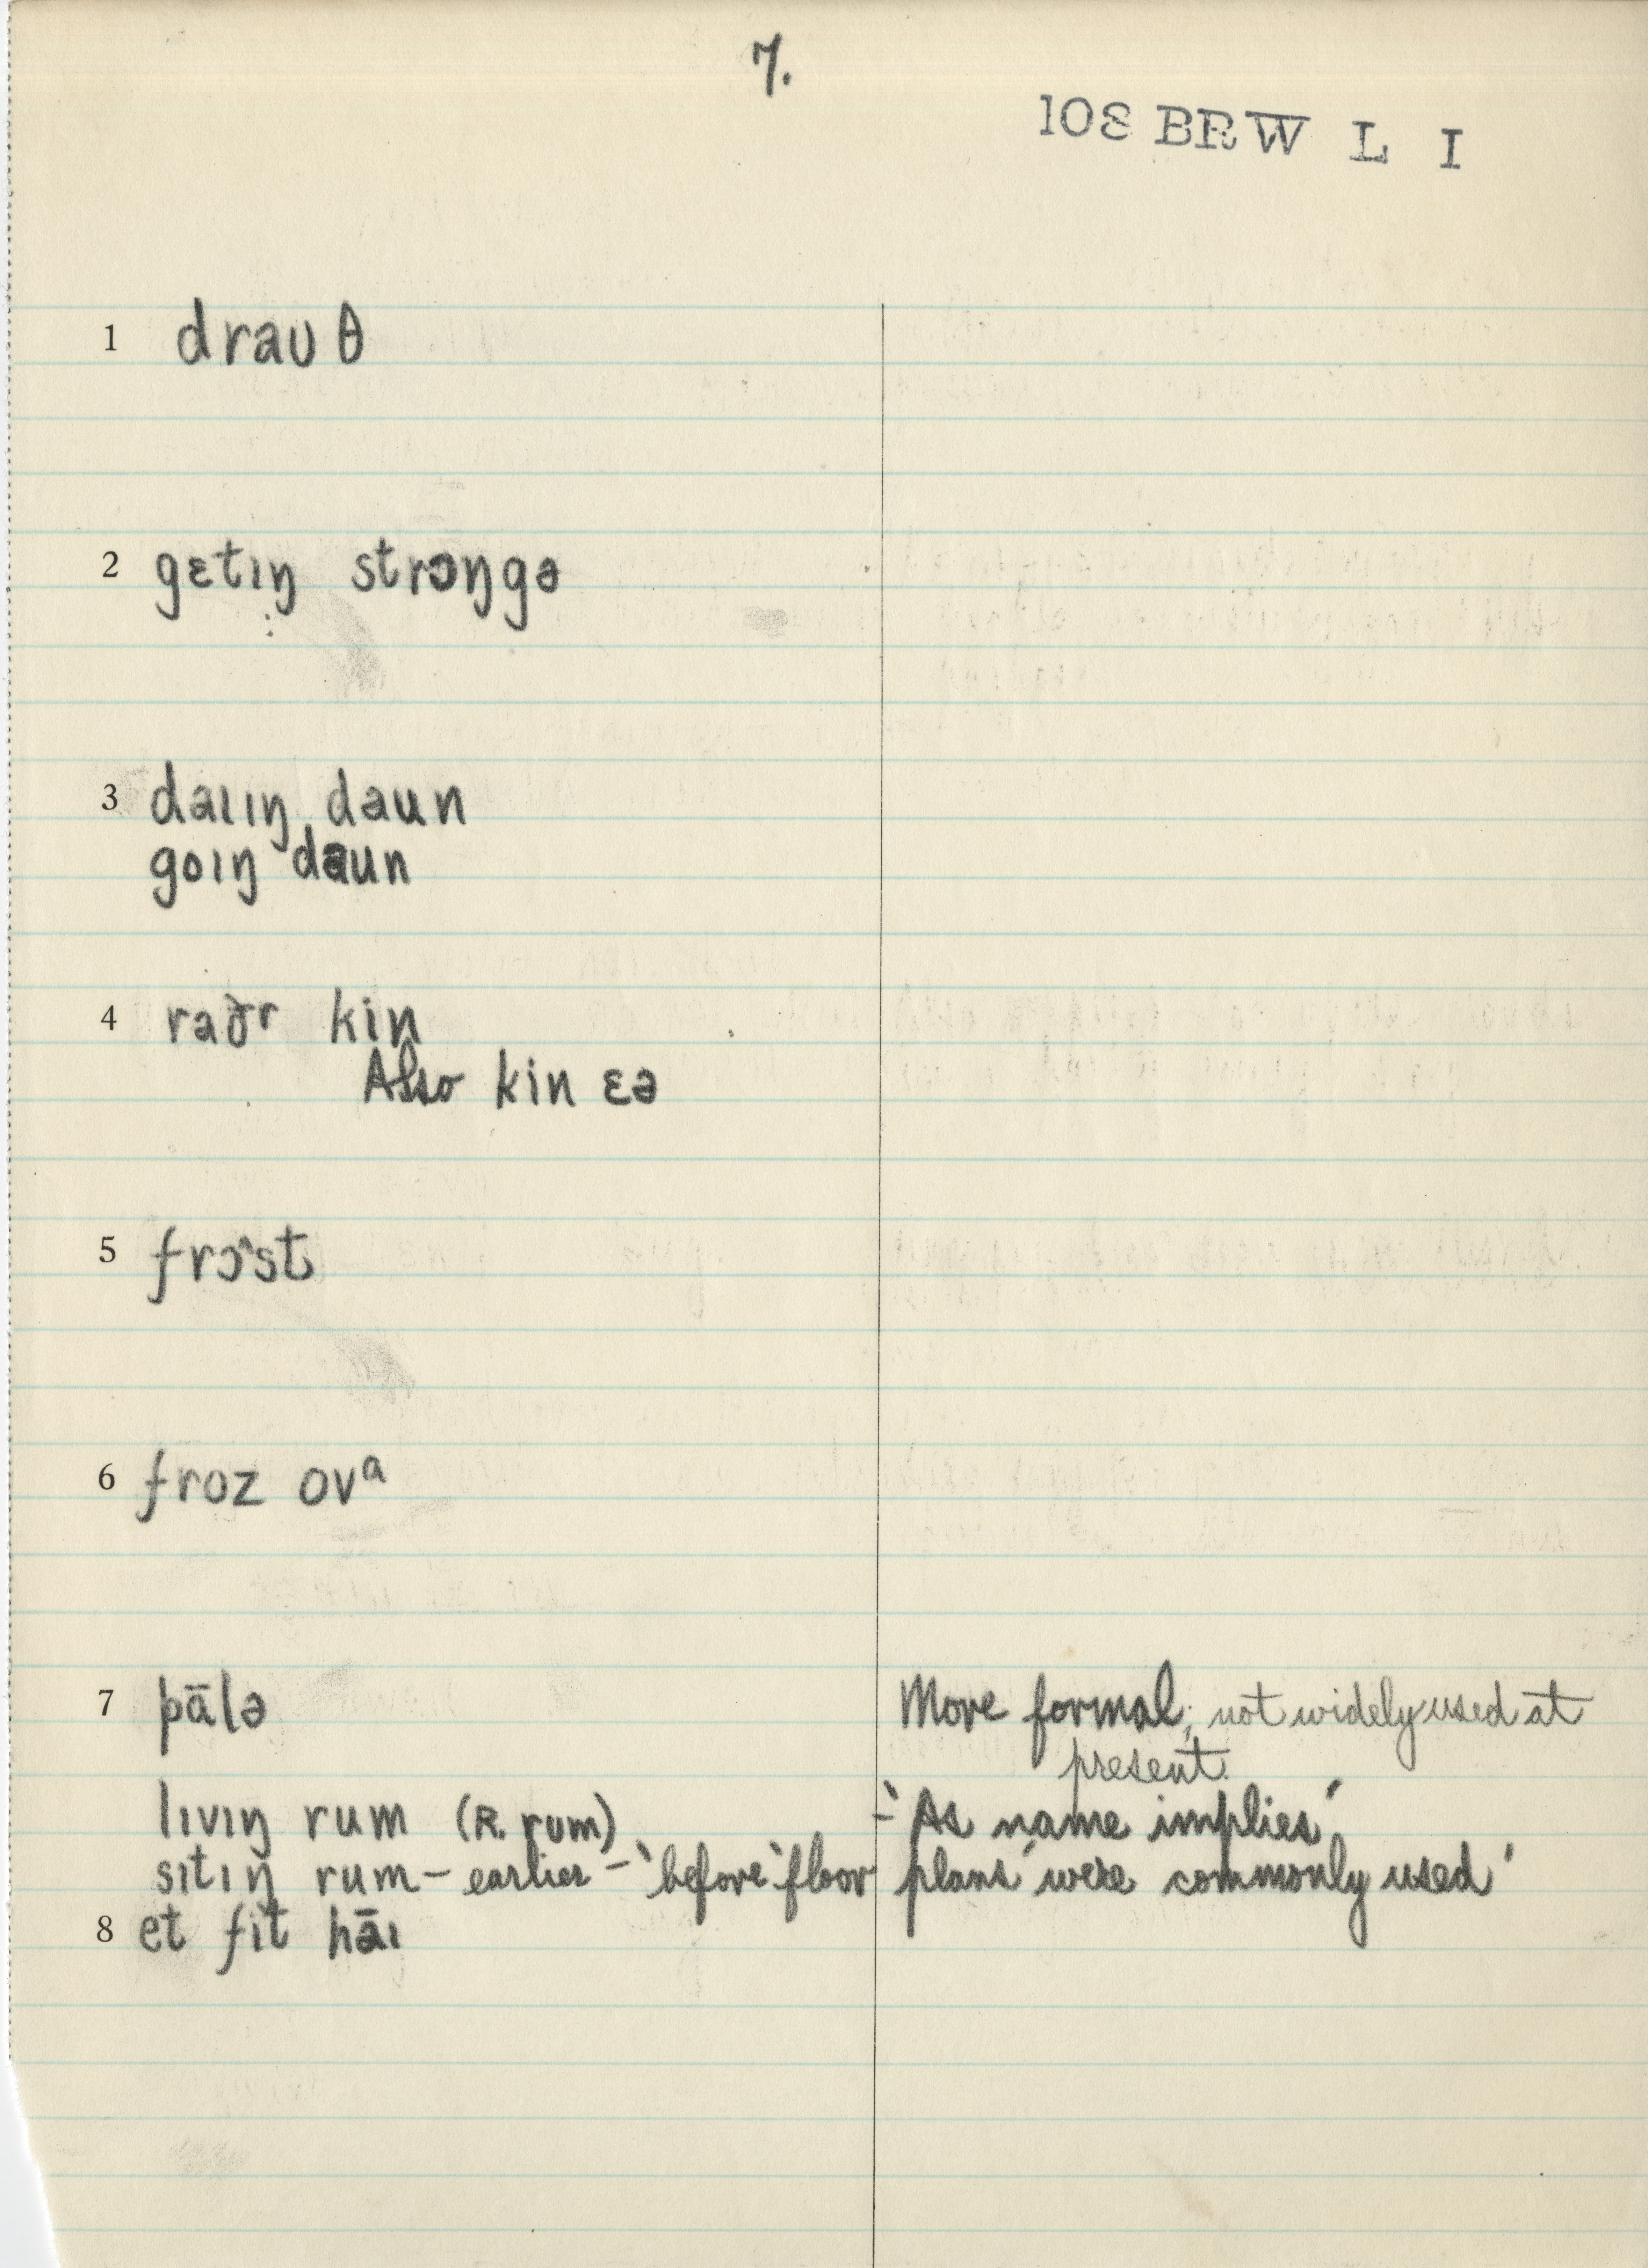 7.
108 BRW L I
1 drauθ
2 gɛtıŋ strɔŋgə
3 daııŋ daun
goıŋ daun
4 raðr kin
Also kin ɛə
5 frɔ^st
6 froz ovᵃ
7 pālə More formal; not widely used at
present.
lıvıŋ rum (R. rum) - 'As name implies'
sıtıŋ rum - earlier - 'before 'floor plans' were commonly used'
8 et fit hāı